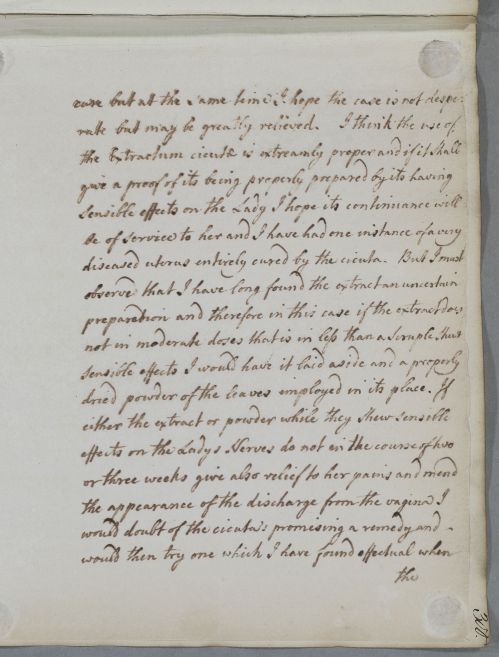 cure but at the same time I hope the case is not despe:
rate but may be greatly relieved. I think the use of
the Extractum cicutæ is extreamly proper and if it shall
give a proof of its being properly prepared by its having
sensible effects on the Lady I hope its continuance will
be of service to her and I have had one instance of a very
diseased uterus entirely cured by the cicuta. But I must
observe that I have long found the extract an uncertain
preparation and therefore in this case if the extract does
not in moderate doses that is in less than a Scruple shew
sensible effects I would have it laid aside and a properly
dried powder of the leaves employed in its place. If
either the extract or powder while they shew sensible
effects on the Ladys Nerves do not in the course of two
or three weeks give also relief to her pains and mend
the appearance of the discharge from the vagina I
would doubt of the cicuta's promising a remedy and
would then try one which I have found effectual when
the